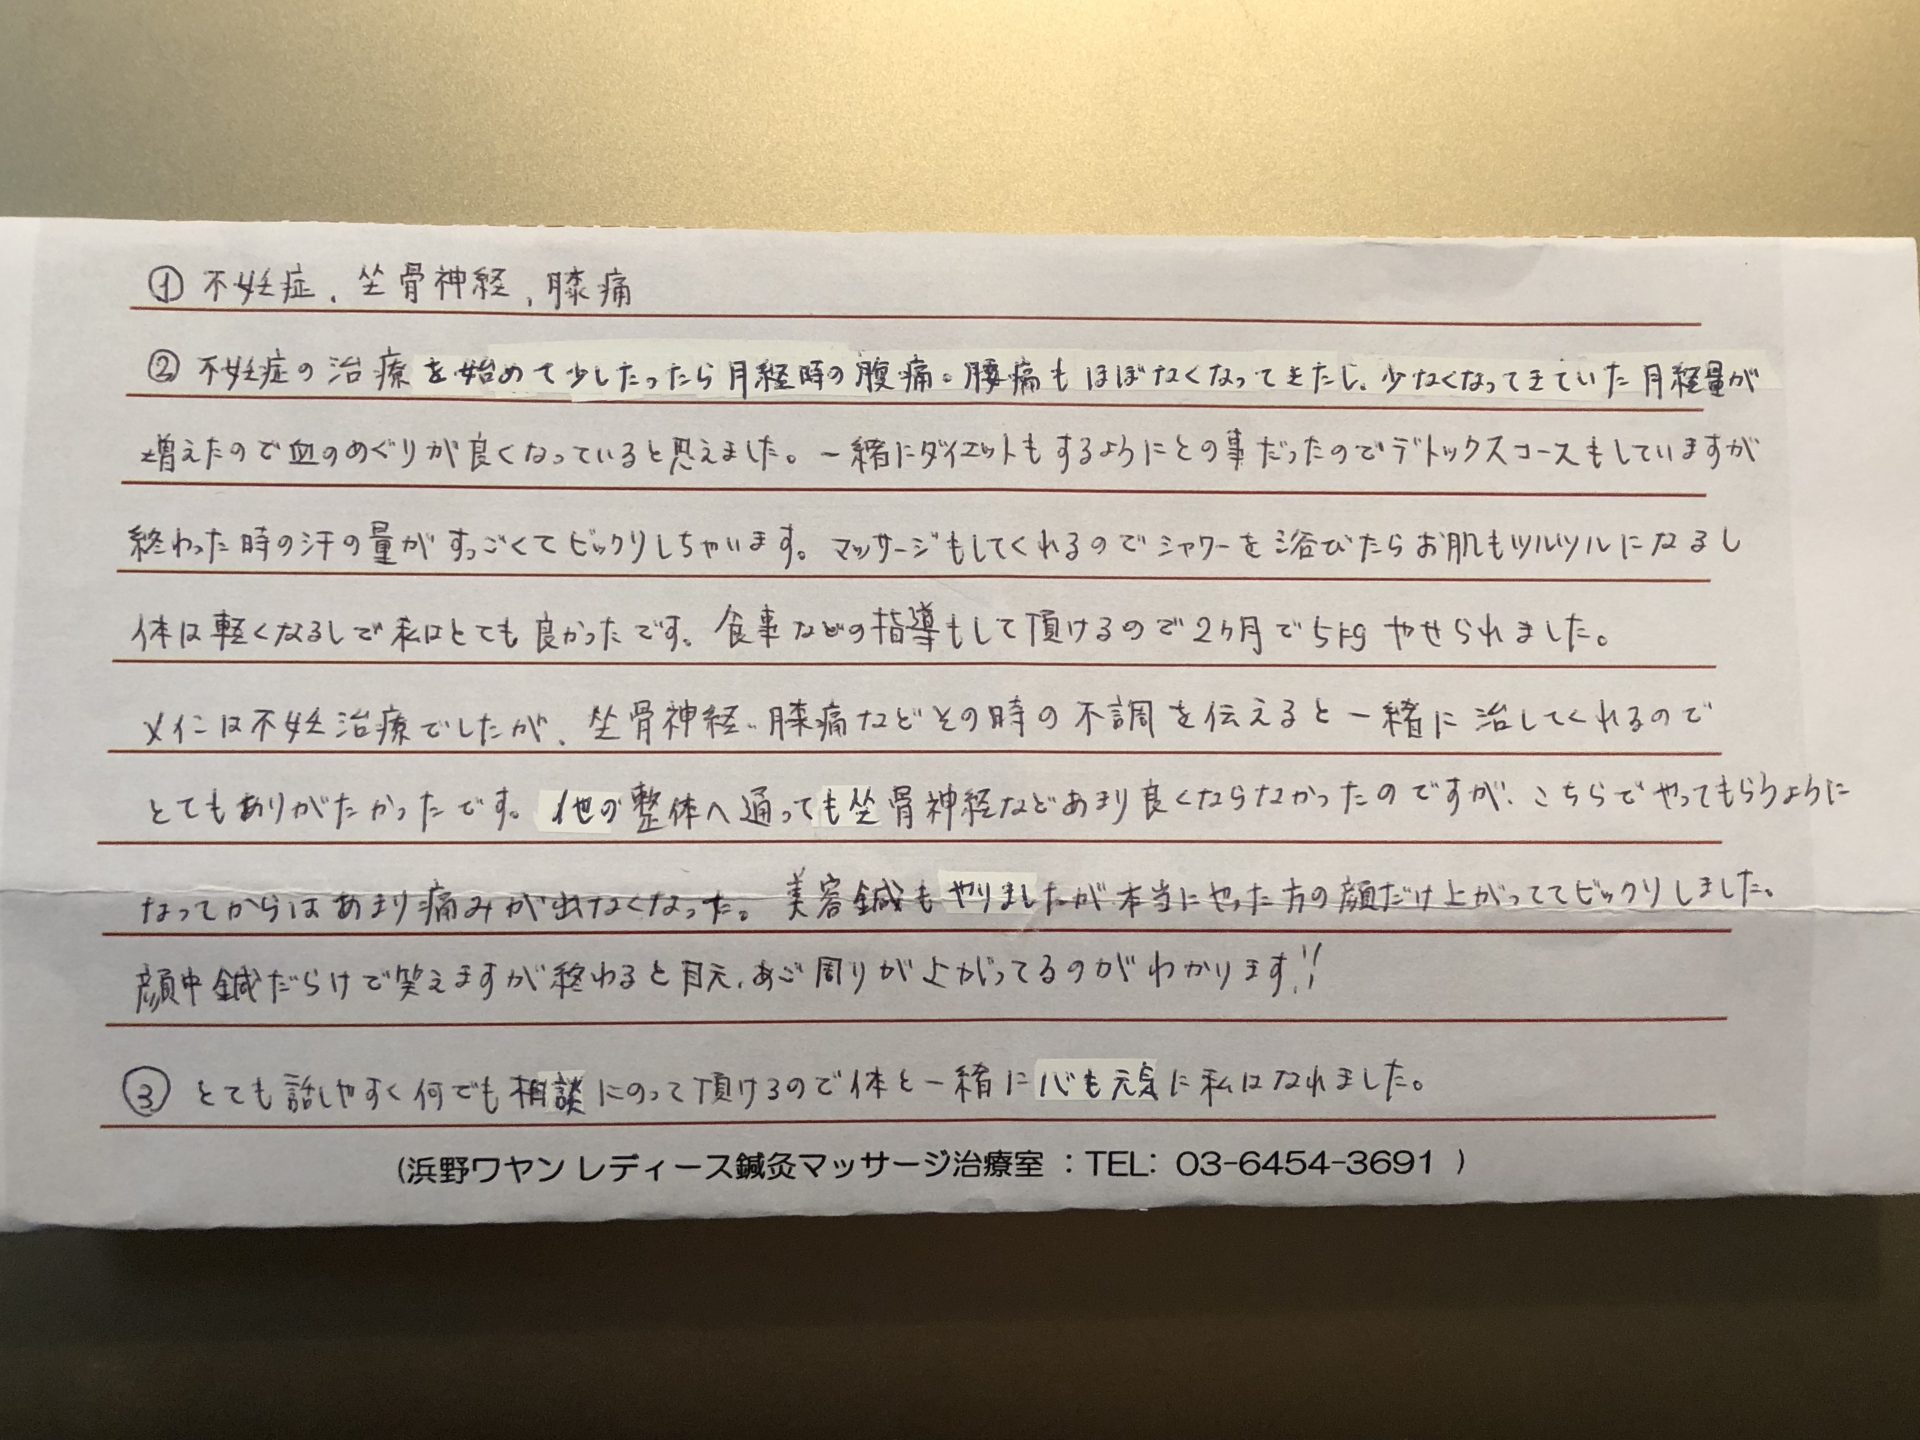 ① 不妊症、坐骨神経、膝痛
② 不妊症の治療を始めて少したったら月経時の腹痛。腰痛もほぼなくなってきたし、少なくなってきていた月経量が
増えたので血のめぐりが良くなっていると思えました。一緒にダイエットもするようにとの事だったのでデトックスコースもしていますが
終わった時の汗の量がすっごくてビックリしちゃいます。マッサージもしてくれるのでシャワーを浴びたらお肌もツルツルになるし
体は軽くなるしで私はとても良かったです。食事などの指導もして頂けるので2ヶ月で5kgやせられました。
メインは不妊治療でしたが、坐骨神経、膝痛などその時の不調を伝えると一緒に治してくれるので
とてもありがたかったです。他の整体へ通っても坐骨神経などあまり良くならなかったのですが、こちらでやってもらうように
なってからはあまり痛みが出なくなった。美容鍼もやりましたが本当にやった方の顔だけ上がっててビックリしました。
顔中鍼だらけで笑えますが終わると目元、あご周りが上がってるのがわかります!!
③ とても話しやすく何でも相談にのって頂けるので体と一緒に心も元気に私はなれました。
(浜野ワヤン レディース鍼灸マッサージ治療室 : TEL: 03-6454-3691 )